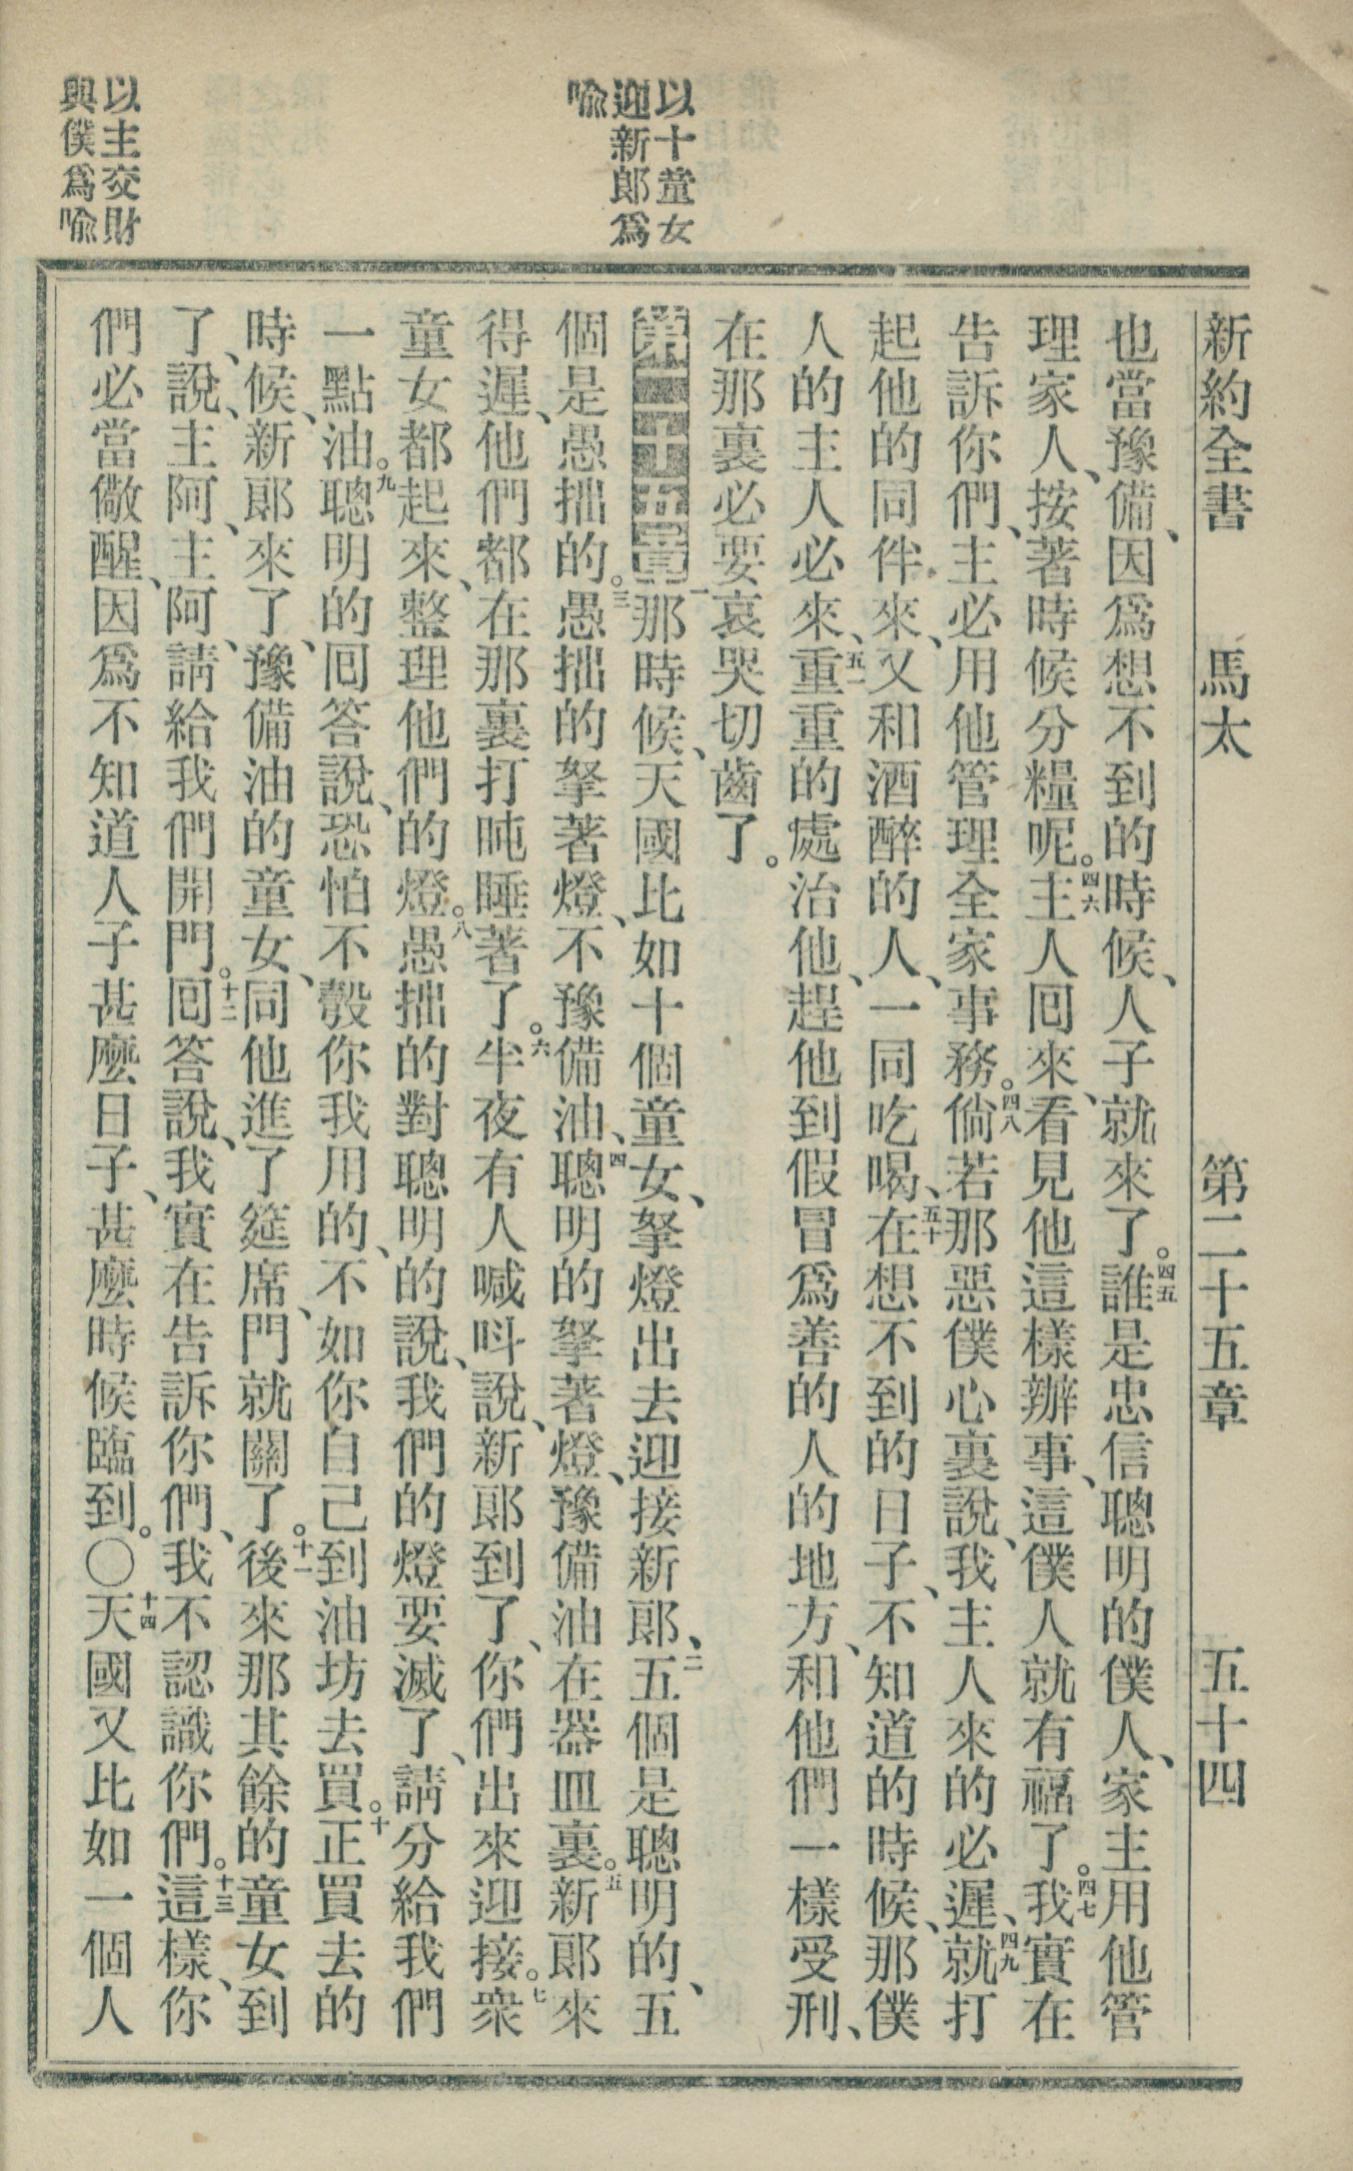 新約全書 馬太 第二十五章 五十四
以十童女
迎新郎爲
喩
以主交財
與僕爲喩
也當豫備、因爲想不到的時候、人子就來了。四五誰是忠信聰明的僕人、家主用他管
理家人、按著時候分糧呢。四六主人囘來、看見他這樣辦事、這僕人就有福了。四七我實在
告訴你們、主必用他管理全家事務。四八倘若那惡僕心裏說、我主人來的必遲、四九就打
起他的同伴來、又和酒醉的人、一同吃喝、五十在想不到的日子、不知道的時候、那僕
人的主人必來、五一重重的處治他、趕他到假冒爲善的人的地方、和他們一樣受刑、
在那裏必要哀哭切齒了。
第二十五章 一那時候、天國比如十個童女、拏燈出去迎接新郎、二五個是聰明的、五
個是愚拙的。三愚拙的拏著燈、不豫備油、四聰明的拏著燈、豫備油在器皿裏。五新郎來
得遲、他們都在那裏打盹睡著了。六半夜有人喊呌說、新郎到了、你們出來迎接。七衆
童女都起來、整理他們的燈。八愚拙的對聰明的說、我們的燈要滅了、請分給我們
一點油。九聰明的囘答說、恐怕不彀你我用的、不如你自己到油坊去買。十正買去的
時候、新郎來了、豫備油的童女、同他進了筵席、門就關了。十一後來那其餘的童女到
了、說、主阿、主阿、請給我們開門。十二囘答說、我實在告訴你們、我不認識你們。十三這樣、你
們必當儆醒、因爲不知道人子甚麼日子、甚麼時候臨到。〇十四天國又比如一個人